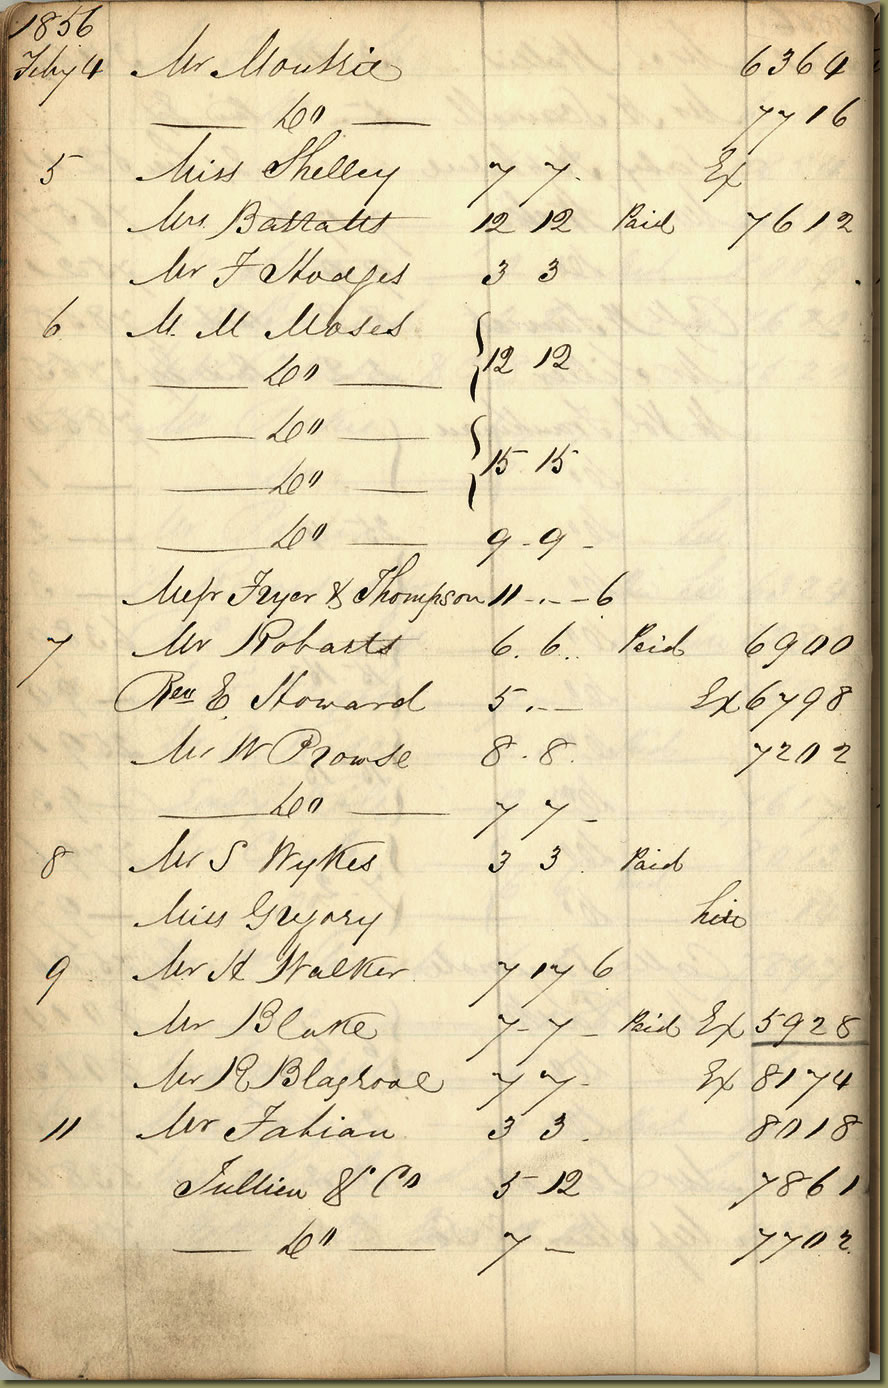 1856
Feby 4 Mr Moutrie 6364
— Do — 7716
5 Miss Shelley 7 7 - Ex
Mrs Barratts 12 12 Paid 7612
Mr F Hodges 3 3
6 M. M Moses
— Do — } 12 12
— Do —
— Do — } 15 15
— Do — 9 - 9 -
Messrs Fryer & Thompson 11 - . - - 6
7 Mr Robarts 6. 6.. Paid 6900
Rev E. Howard 5 . - - Ex 6798
Mr W Prowse 8 . 8. 7202
— Do — 7 7 -
8 Mr S Wykes 3 3 . Paid
Miss Gregory hire
9 Mr H Walker 7 17 6
Mr Blake 7 - 7 - Paid Ex 5928
Mr R Blagrove 7 7 - Ex 8174
11 Mr Fabian 3 3 . 8018
Jullien & Co 5 12 7861
— Do — 7 — 7702